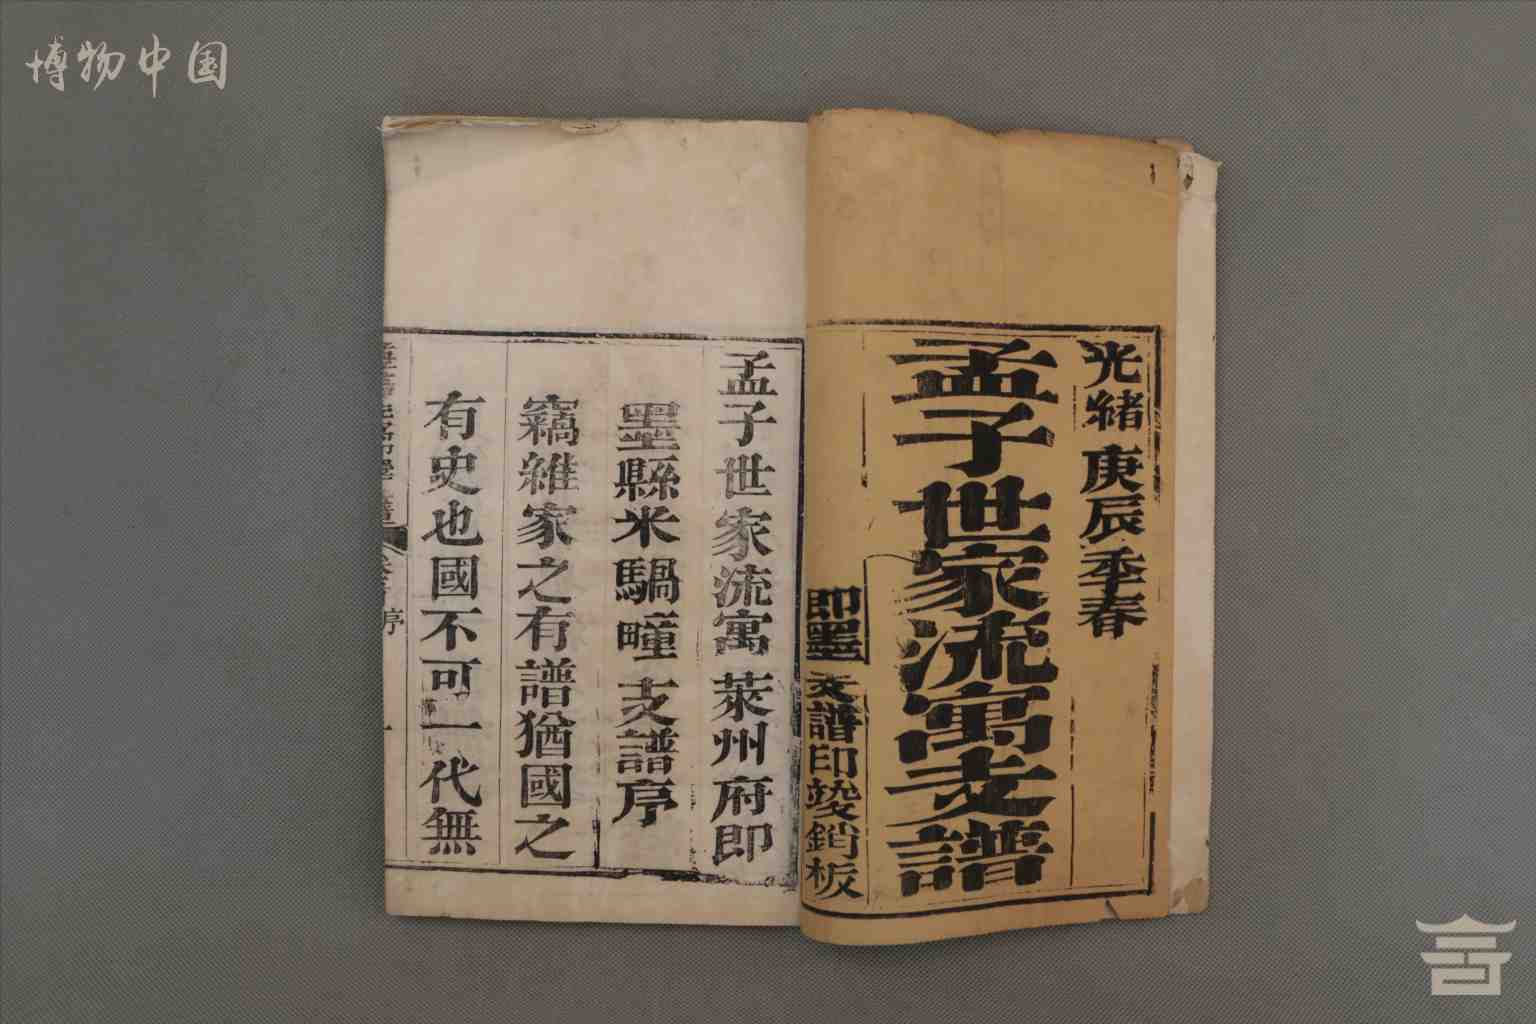 博物中国
光緒庚辰季春
孟子世家流寓支譜
即墨支譜印竣銷板
孟子世家流寓萊州府即
墨縣米騧疃支譜序
竊維家之有譜猶國之
有史也國不可一代無
序
一